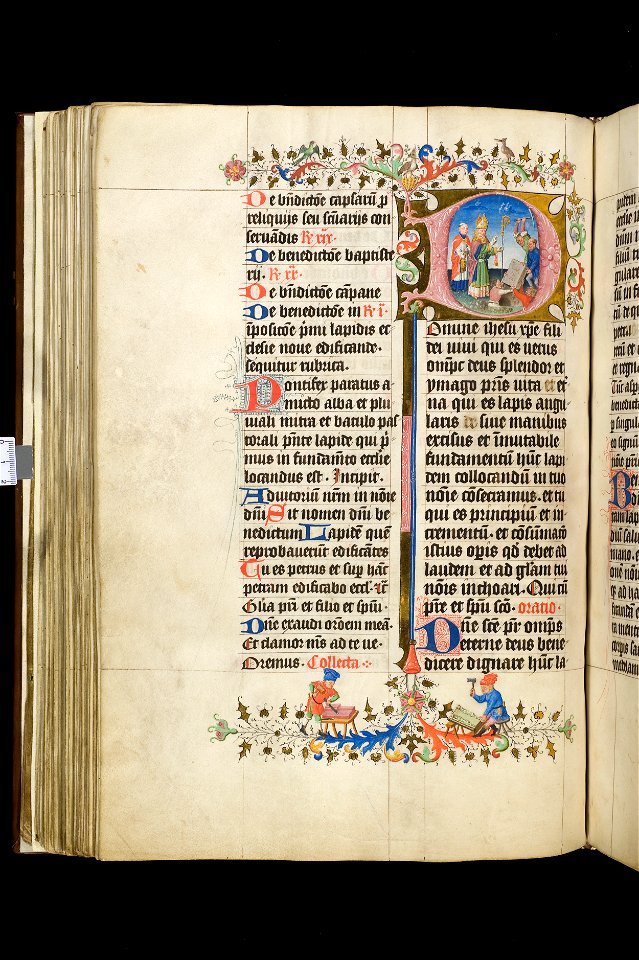 De bn̄dictōe capsarū p̄
reliquijs seu scūarijs con
seruādis R̄ xix.
De benedictōe baptiste
rij. R̄ xx.
De bn̄dictōe cāpane
De benedictōe in R̄ i.
īposicōe pṁi lapidis ec
clesie noue edificande.
sequitur rubrica.
Pontifex paratus a
micto alba et plu
uiali mitra et baculo pas
torali pn̄te lapide qui p̄
mus in fundamēto ecclīe
locandus est. Incipit.
Adiutoriū nr̄m in nōie
dn̄i Sit nomen dn̄i be
nedictum Lapidē quē
reprobauerūt edificātes
Tu es petrus et sup̄ hāc
petram edificabo eccl. ꝟc
Gl̄ia pr̄i et filio et sp̄iu.
Dn̄e exaudi orōem meā.
Et clamor m̄s ad te ue.
Oremus. Collecta
Domine ihesu xp̄e fili
dei uiui qui es uerus
om̄pc deus splendor et
ymago pr̄is uita et et
na qui es lapis angu
laris de siue manibus
excisus et īmutabile
fundamentū hūc lapi
dem collocandū in tuo
nōie cōsecramus. et tu
qui es principiū et in
crementū. et cōsumatō
istius op̄is qd̄ debet ad
laudem et ad gl̄am tui
nōis inchoari. Qui cū
pr̄e et sp̄u scō. oratio.
Dn̄e scē pr̄ om̄ps
eterne deus bene
dicere dignare hūc la